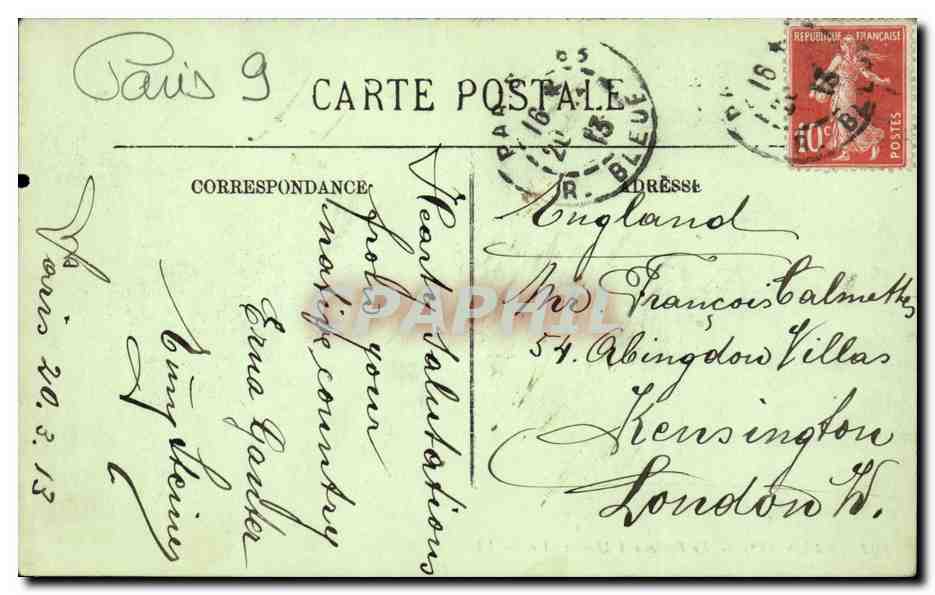 Paris 9
CARTE POSTALE
REPUBLIQUE FRANÇAISE
10c
POSTES
16
20
13
R. BLEUE
CORRESPONDANCE
ADRESSE
Paris 20.3.13
Hearty Salutations
from your
native country
Erna
England
Mr François Calmettes
54. Abingdon Villas
Kensington
London W.
CPAPHIL